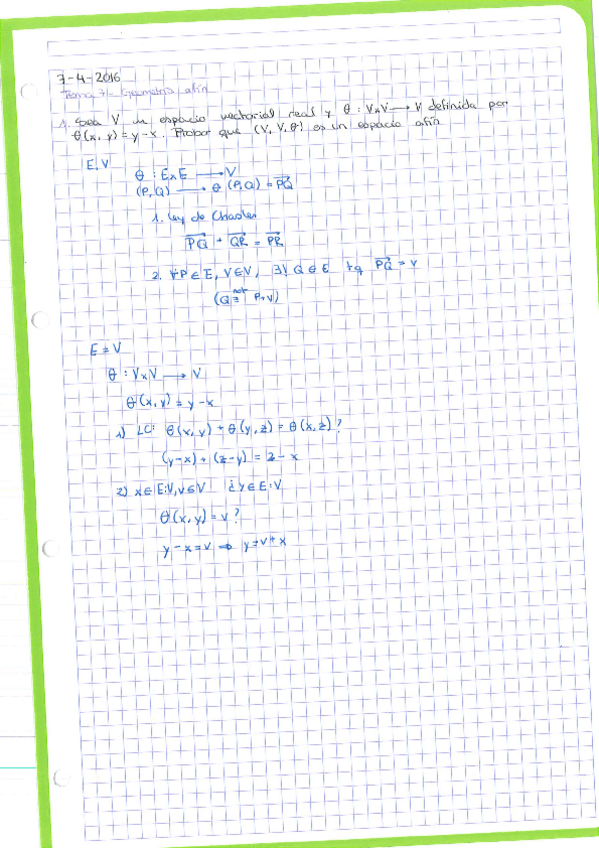 7-4-2016
Tema 7: Geometría afín
1. Sea V un espacio vectorial real y θ : V×V → V definida por
θ(x, y) = y-x. Probar que (V, V, θ) es un espacio afín
E, V
θ : E×E → V
(P, Q) → θ(P, Q) = PQ
1. Ley de Chasles
PQ + QR = PR
2. ∀P ∈ E, V ∈ V, ∃! Q ∈ E tq PQ = v
(Q not= P+v)
E = V
θ : V×V → V
θ(x, y) = y-x
1) LC: θ(x, y) + θ(y, z) = θ(x, z)?
(y-x) + (z-y) = z-x
2) x ∈ E=V, v ∈ V ¿Y ∈ E=V
θ(x, y) = v?
y-x=v ⇒ y=v+x